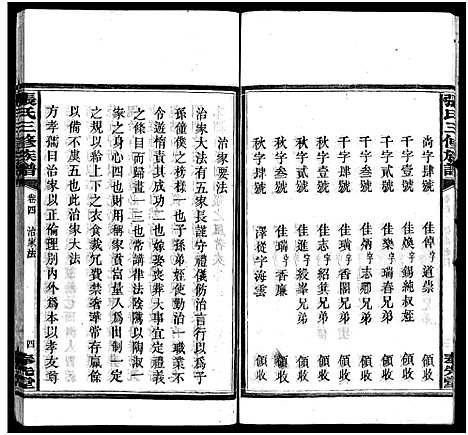 張氏三修族譜
奉先堂
尚字肆號 佳倬 道崇 領收
千字壹號 佳煥 錫純叔姪 領收
千字貳號 佳樂 瑞春兄弟 領收
千字叁號 佳炳 志卿兄弟 領收
千字肆號 佳璜 香圃兄弟 領收
秋字壹號 佳志 紹箕兄弟 領收
秋字貳號 佳進 毅峯兄弟 領收
秋字叁號 佳瑞 香廉 領收
秋字肆號 澤從字海雲 領收
治家要法
治家大法有五家長謹守禮儀飭治言行以爲子
孫僮僕之榜樣一也子孫弟姪使勤治一職業不
令遊惰責其成功二也嫁娶喪葬大事宜定禮義
之條目而歸畫一三也常講律法陰隲以陶淑一
家之身心四也財用稱家貧富量入爲出制一定
之規以給上下之衣食裁冗費禁奢華常存贏餘
以備不虞五也此治家大法
方孝孺曰治家以正倫理別內外爲本以孝友尊
張氏三修族譜
卷四 治家法
四
奉先堂